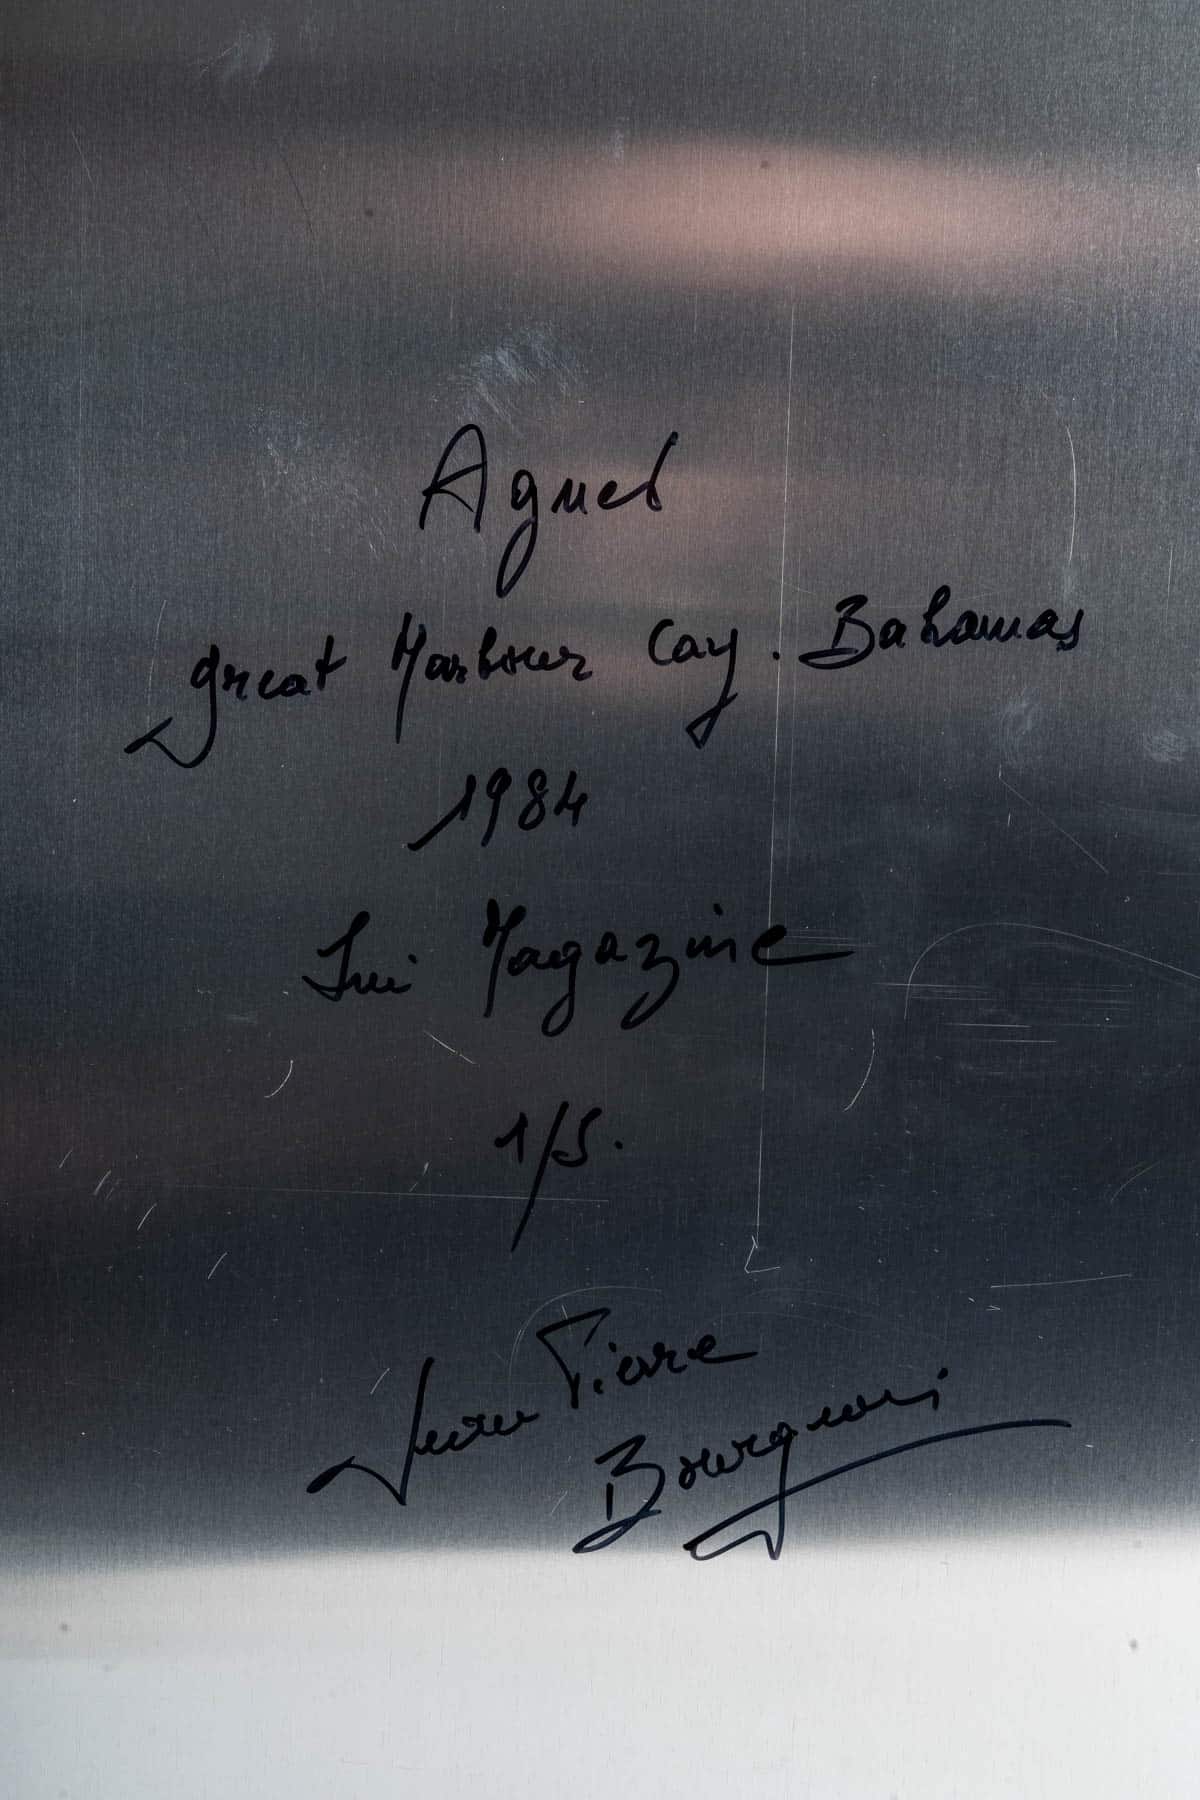 Agnes
Great Harbour Cay. Bahamas
1984
Lui Magazine
1/5.
Jean Pierre
Bourgnon